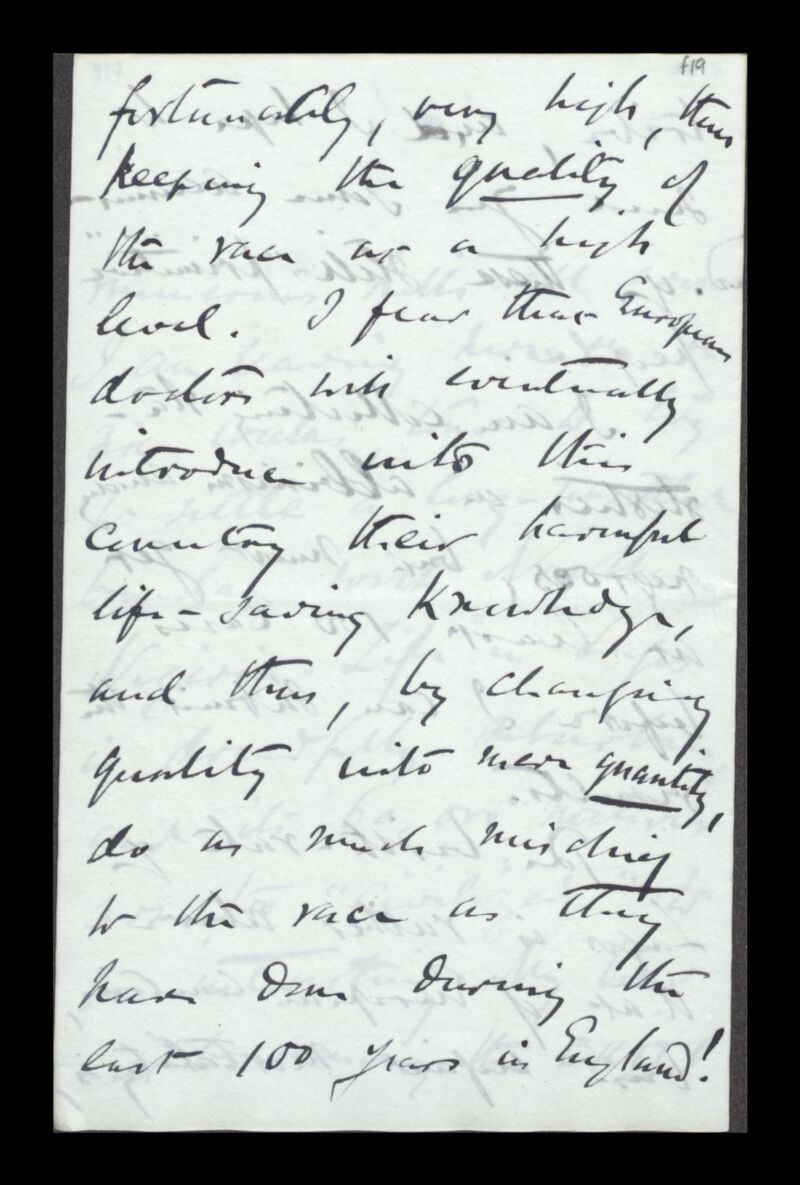 f19
fortunately, very high, thus
keeping the quality of
the race at a high
level. I fear that European
doctors will eventually
introduce into this
country their harmful
life-saving knowledge,
and thus, by changing
quality into mere quantity,
do as much mischief
to the race as they
have done during the
last 100 years in England!